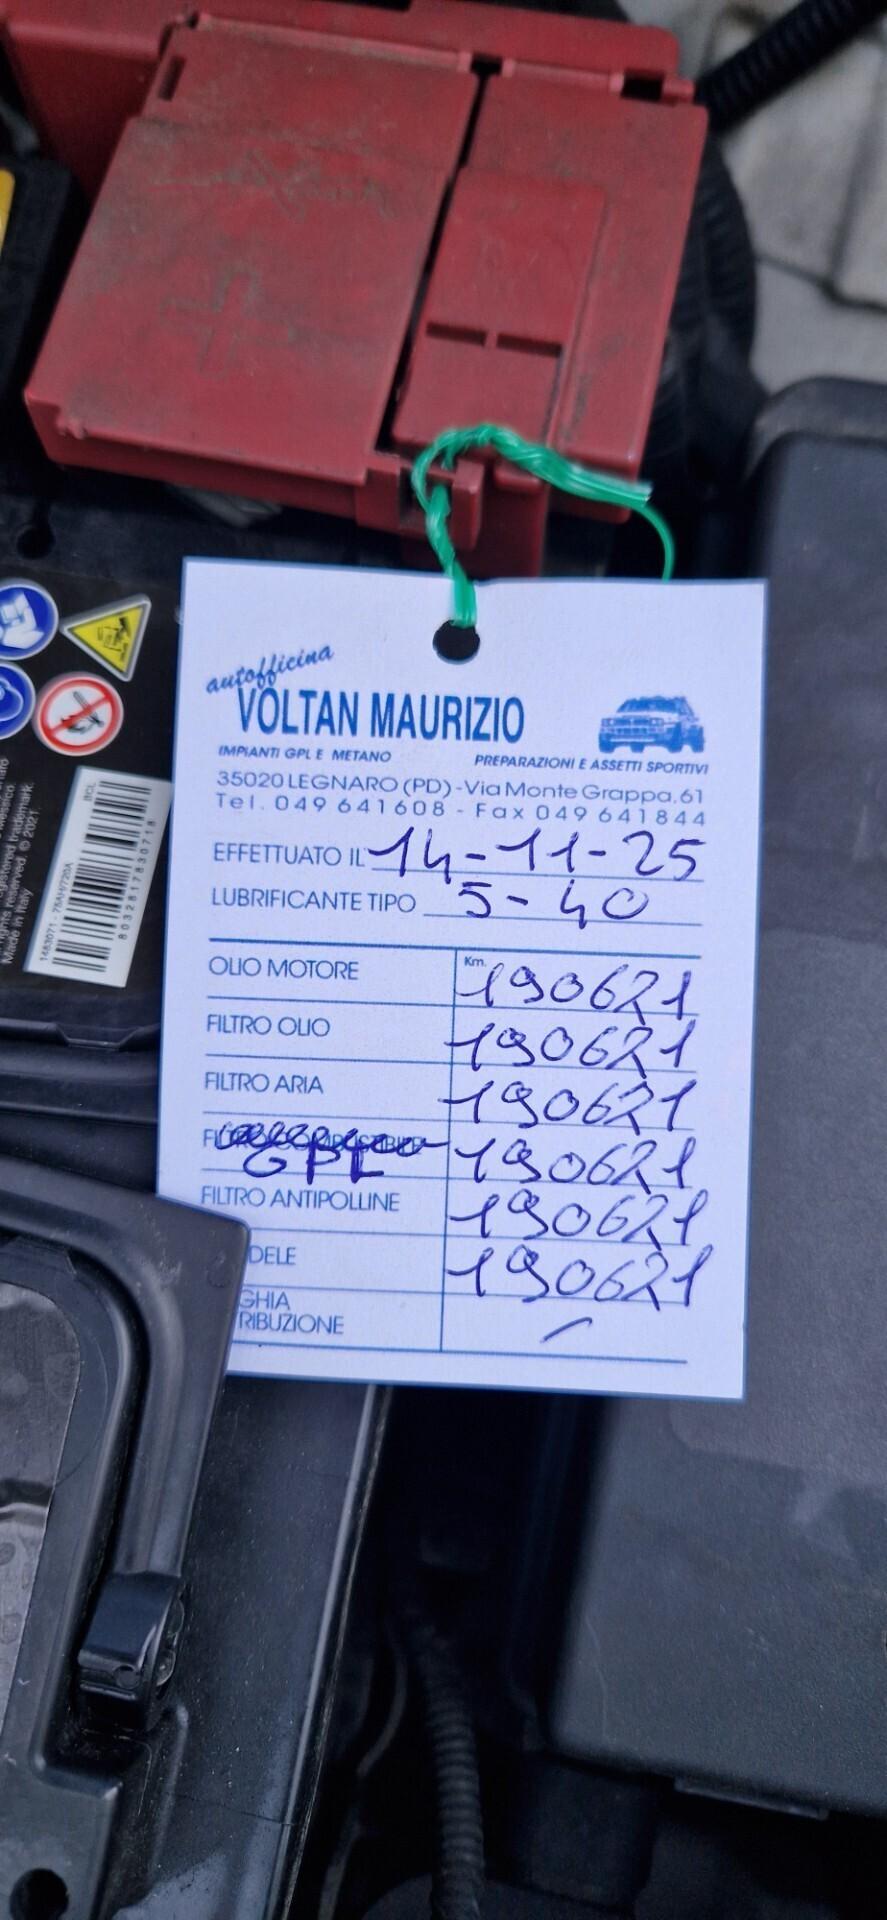 autofficina
VOLTAN MAURIZIO
IMPIANTI GPL E METANO PREPARAZIONI E ASSETTI SPORTIVI
35020 LEGNARO (PD) - Via Monte Grappa, 61
Tel. 049 641608 - Fax 049 641844
EFFETTUATO IL 14-11-25
LUBRIFICANTE TIPO 5-40
OLIO MOTORE Km. 190621
FILTRO OLIO 190621
FILTRO ARIA 190621
FILTRO COMBUSTIBILE
GPL 190621
FILTRO ANTIPOLLINE 190621
DELE 190621
GHIA
RIBUZIONE
registered trademark.
rights reserved. © 2021
Made in Italy
BCL
8032817830718